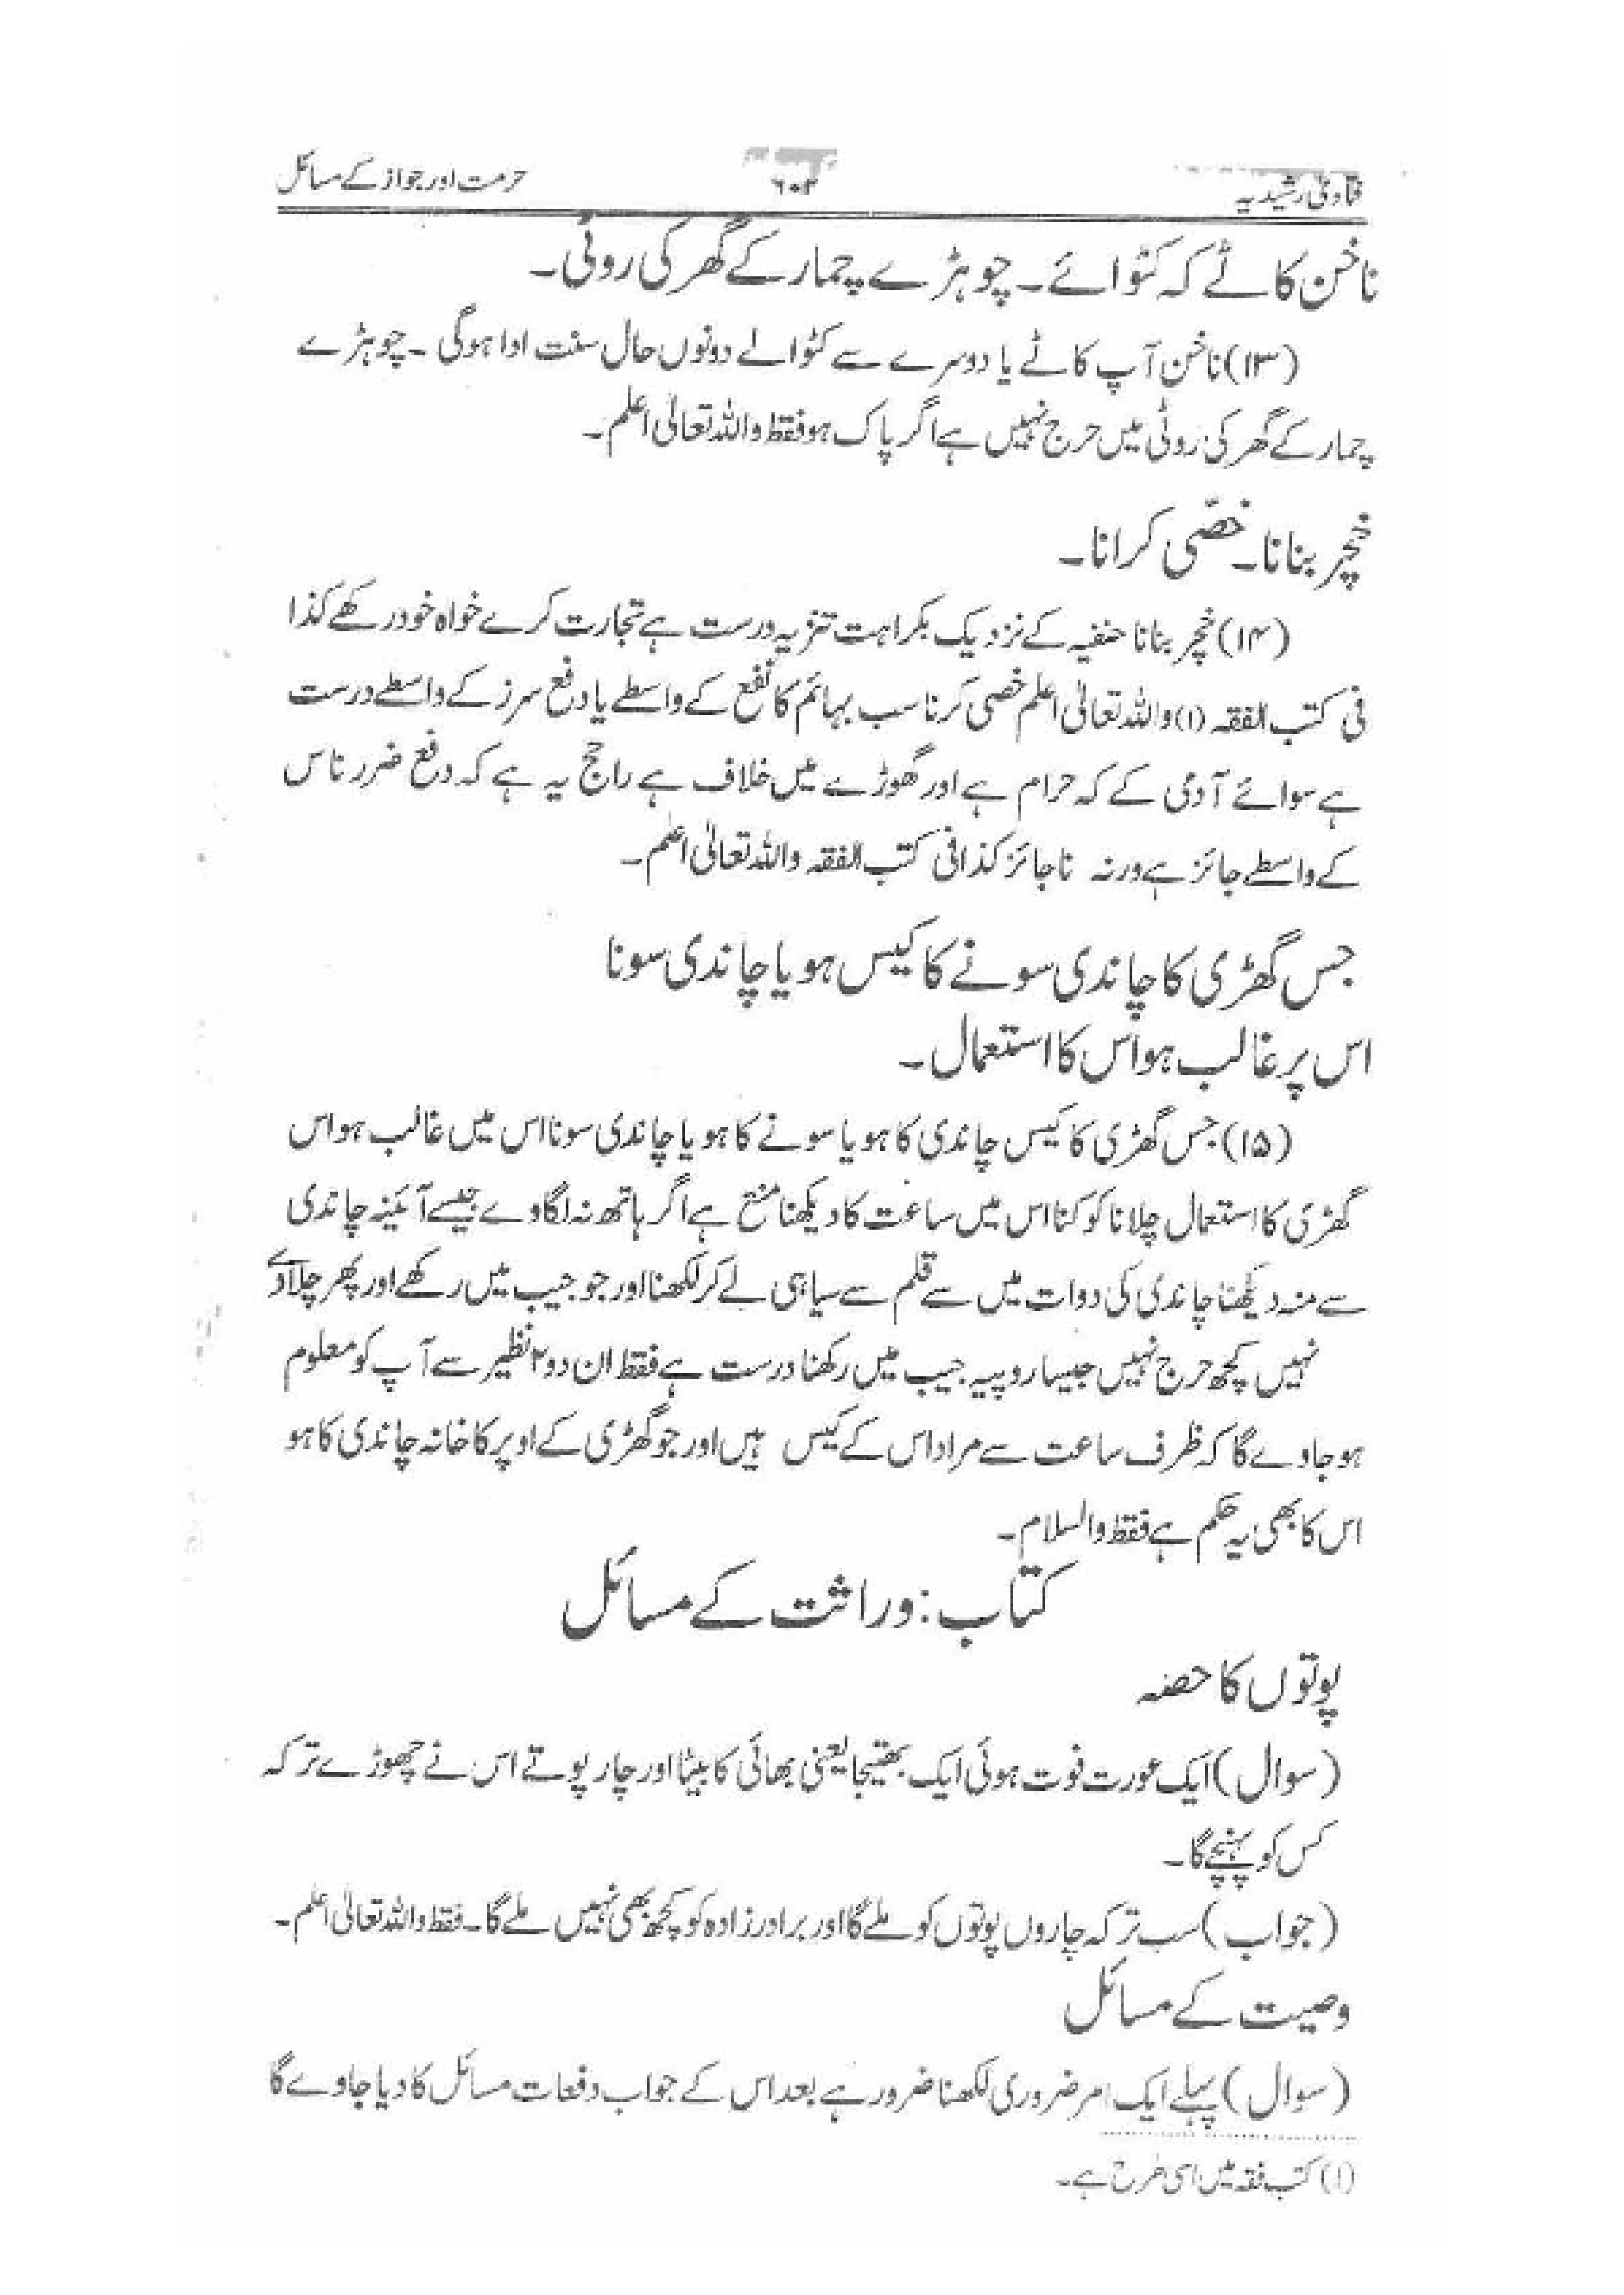 فتاویٰ رشیدیہ ۶۰۲ حرمت اور جواز کے مسائل
ناخن کاٹے کہ کٹوائے۔ چوہڑے چمار کے گھر کی روٹی۔
(۱۳) ناخن آپ کاٹے یا دوسرے سے کٹوالے دونوں حال سنت ادا ہوگی ۔ چوہڑے
چمار کے گھر کی روٹی میں حرج نہیں ہے اگر پاک ہو فقط واللہ تعالٰی اعلم۔
خچر بنانا۔ خصّی کرانا۔
(۱۴) خچر بنانا حنفیہ کے نزدیک بکراہت تنزیہ درست ہے تجارت کرے خواہ خود رکھے کذا
فی کتب الفقہ (۱) واللہ تعالٰی اعلم خصی کرنا سب بہائم کا نفع کے واسطے یا دفع سرز کے واسطے درست
ہے سوائے آدمی کے کہ حرام ہے اور گھوڑے میں خلاف ہے راجح یہ ہے کہ دفع ضرر ناس
کے واسطے جائز ہے ورنہ ناجائز کذا فی کتب الفقہ واللہ تعالٰی اعلم۔
جس گھڑی کا چاندی سونے کا کیس ہو یا چاندی سونا
اس پر غالب ہو اس کا استعمال۔
(۱۵) جس گھڑی کا کیس چاندی کا ہو یا سونے کا ہو یا چاندی سونا اس میں غالب ہو اس
گھڑی کا استعمال چلانا کوکنا اس میں ساعت کا دیکھنا منع ہے اگر ہاتھ نہ لگاوے جیسے آئینہ چاندی
سے منہ دیکھنا چاندی کی دوات میں سے قلم سے سیاہی لے کر لکھنا اور جو جیب میں رکھے اور پھر چلاوے
نہیں کچھ حرج نہیں جیسا روپیہ جیب میں رکھنا درست ہے فقط ان دو۲ نظیر سے آپ کو معلوم
ہو جاوے گا کہ ظرف ساعت سے مراد اس کے کیس ہیں اور جو گھڑی کے اوپر کا خانہ چاندی کا ہو
اس کا بھی یہ حکم ہے فقط والسلام۔
کتاب: وراثت کے مسائل
پوتوں کا حصہ
(سوال) ایک عورت فوت ہوئی ایک بھتیجا یعنی بھائی کا بیٹا اور چار پوتے اس نے چھوڑے ترکہ
کس کو پہنچے گا۔
(جواب) سب ترکہ چاروں پوتوں کو ملے گا اور برادر زادہ کو کچھ بھی نہیں ملے گا۔ فقط واللہ تعالٰی اعلم۔
وصیت کے مسائل
(سوال) پہلے ایک امر ضروری لکھنا ضرور ہے بعد اس کے جواب دفعات مسائل کا دیا جاوے گا
(۱) کتب فقہ میں اسی طرح ہے۔